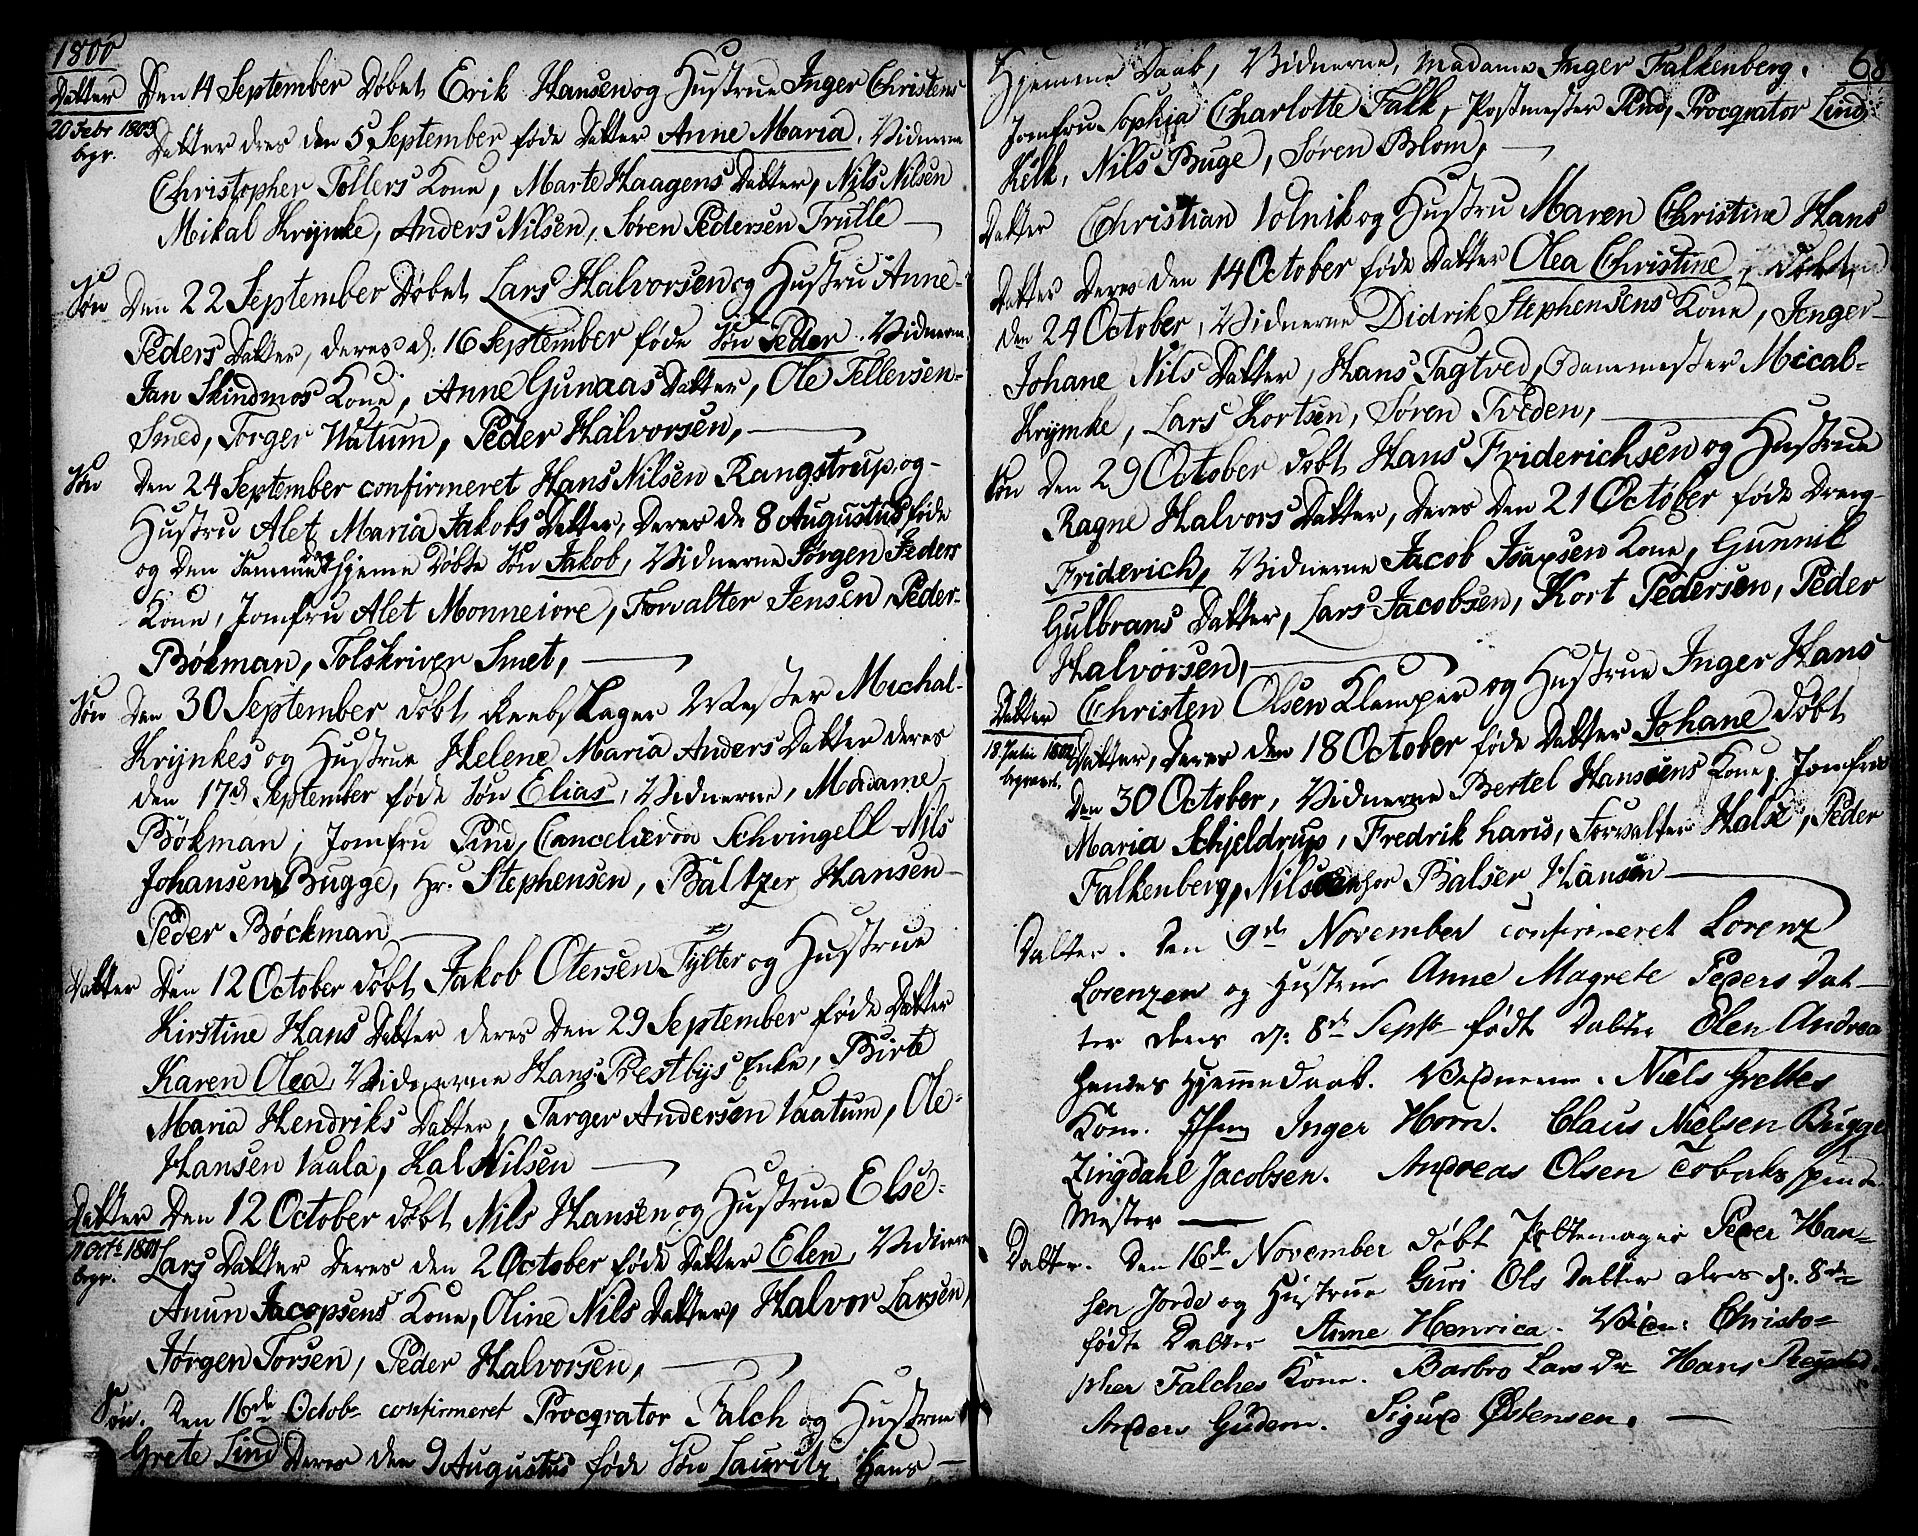 1800
Datter Den 14 September Døbet Erik Hansen og Hustrue Inger Christens
20 Febr 1803 begr. Datter dres den 5 September føde Datter Anne Maria, Vidnerne
Christopher Tollers Kone, Marte Haagens Datter, Nils Nilsen
Mikal Krynke, Anders Nilsen, Søren Pedersen Trulle
Søn Den 22 September Døbet Lars Halvorsen og Hustru Anne
Peders Datter, deres d: 16 September føde Søn Peder. Vidnerne
Jan Skindmos Kone, Anne Gunaas Datter, Ole Tellersen
Smed, Torger Watum, Peder Halvorsen,
Søn Den 24 September confirmeret Hans Nilsen Rangstrup og
Hustru Alet Maria Jakobs Datter, Deres de 8 Augustus føde
og den samme Dag hjeme Døbte Søn Jakob, Vidnerne Jørgen Peders
Kone, Jomfru Alet Monneiore, Forvalter Jensen, Peder
Bøkman, Tolskriver Smet,
Søn Den 30 September døbt Reebslager Mester Michal
Krijnkes og Hustrue Helene Maria Anders Datter deres
den 17de September føde Søn Elias, Vidnerne, Madame
Bøkman, Jomfru Pind, Cancelieraa Schvingell Nils
Johansen Bugge, Hr: Stephensen, Baltzer Hansen
Peder Bøckman
Datter Den 12 October døbt Jakob Otersen Tylter og Hustrue
Kirstine Hans Datter deres Den 29 September føde Datter
Karen Olea, Vidnerne Hans Prestbys Enke, Birte
Maria Hendriks Datter, Targer Andersen Vaatum, Ole
Hansen Vaala, Kal Nilsen
Datter Den 12 October døbt Nils Hansen og Hustrue Else
Octr 1801 begr. Lars Datter Deres den 2 October føde Datter Elen, Vidnerne
Anun Jacopsens Kone, Oline Nils Datter, Halvor Larsen,
Jørgen Torsen, Peder Halvorsen,
Søn. Den 16de Octobr confirmeret Procqrator Falch og Hustrue
Grete Lind Deres den 9 Augustus føde Søn Lauritz, Hans
Hjemme Daab, Vidnerne, Madame Inger Falkenberg. 68
Jomfru Sophia Charlotte Falk, Postmester Pind, Procqrator Lind,
Kelk, Nils Buge, Søren Blom,
Datter Christian Volnik og Hustru Maren Christine Hans
Datter Deres den 14 October føde Datter Olea Christine, Døbt
den 24 October, Vidnerne Didrik Stephensens Kone, Inger
Johane Nils Datter, Hans Tagtved, Mical
Krymke, Lars Kortsen, Søren Tveden,
Søn Den 29 October døbt Hans Friderichsen og Hustrue
Ragne Halvors Datter, Deres Den 21 October føde Dreng
Friderich, Vidnerne Jacob Isaksen Kone, Gunnil
Gulbrans Datter, Lars Jacobsen, Kort Pedersen, Peder
Halvorsen,
Datter Christen Olsen Klemper og Hustrue Inger Hans
18 1801 begravet. Datter, Deres den 18 October føde Datter Johane døbt
Den 30 October, Vidnerne Bertel Hansens Kone, Jomfru
Maria Schjeldrup, Fredrik haris, Forvalter Halse, Peder
Falkenberg, Nils Balser Hansen
Datter. Den 9de November confirmeret Lorenz
Lorenzen og Hustrue Anne Magrete Peders Dat
ter deres d: 8de Septbr fødte Datter Elen Andrea
Hendes Hjemmedaab. Vidnerne. Niels Grettes
Kone. Jfru Inger Horn. Claus Nielsen Bugge
Zingdahl Jacobsen. Andreas Olsen Tobaks spinder
Mester
Datter. Den 16de November døbt Peder Han=
sen Jorde og Hustrue Guri Ols Datter deres d: 8de
fødte Datter Anne Henrica. Vidn: Christo=
pher Falches Kone. Barbro Lars Dr Hans
Anders Gudem. Sigurd Østensen.